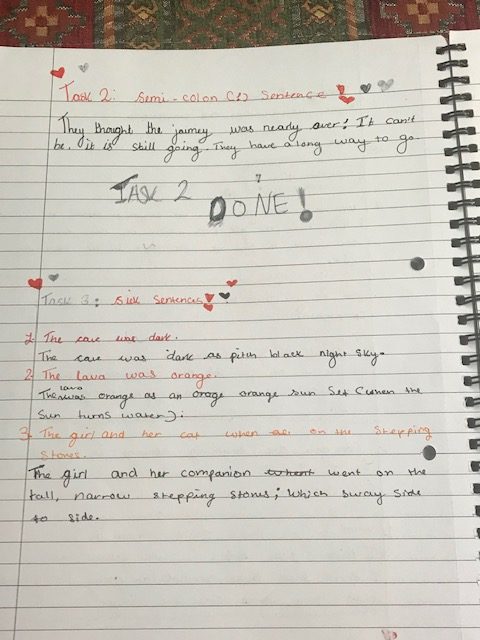 Task 2: Semi-colon (;) Sentence !
They thought the journey was nearly over; It can't
be, it is still going. They have a long way to go.
TASK 2 DONE!
Task 3: Sick Sentences!
1. The cave was dark.
The cave was dark as pitch black night sky.
2. The lava was orange.
The lava was orange as an orage orange sun set (when the
sun turns water).
3. The girl and her cat when on the stepping
stones.
The girl and her companion went on the
tall, narrow stepping stones; which sway side
to side.